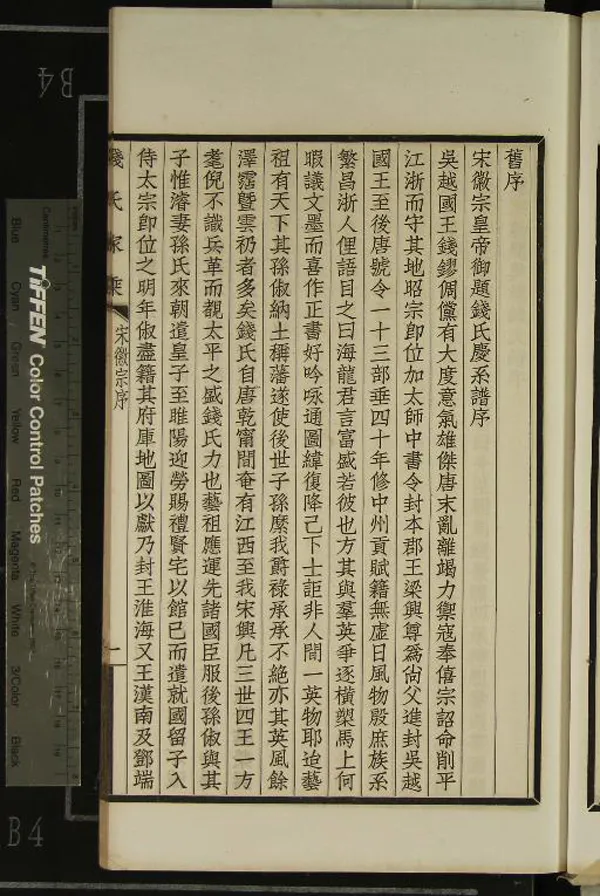 舊序
宋徽宗皇帝御題錢氏慶系譜序
吳越國王錢鏐倜儻有大度意氣雄傑唐末亂離竭力禦寇奉僖宗詔命削平
江浙而守其地昭宗卽位加太師中書令封本郡王梁興尊爲尙父進封吳越
國王至後唐號令一十三部垂四十年修中州貢賦籍無虛日風物殷庶族系
繁昌浙人俚語目之曰海龍君言富盛若彼也方其與羣英爭逐橫槊馬上何
暇議文墨而喜作正書好吟咏通圖緯復降己下士詎非人間一英物耶迨藝
祖有天下其孫俶納土稱藩遂使後世子孫縻我爵祿承承不絕亦其英風餘
澤霑曁雲礽者多矣錢氏自唐乾甯間奄有江西至我宋興凡三世四王一方
耄倪不識兵革而覩太平之盛錢氏力也藝祖應運先諸國臣服後孫俶與其
子惟濬妻孫氏來朝遣皇子至睢陽迎勞賜禮賢宅以館已而遣就國留子入
侍太宗卽位之明年俶盡籍其府庫地圖以獻乃封王淮海又王漢南及鄧端
錢氏家乘
宋徽宗序
一
B4
B4
Centimetres
TIFFEN Color Control Patches
Blue
Cyan
Green
Yellow
Red
Magenta
White
3/Color
Black